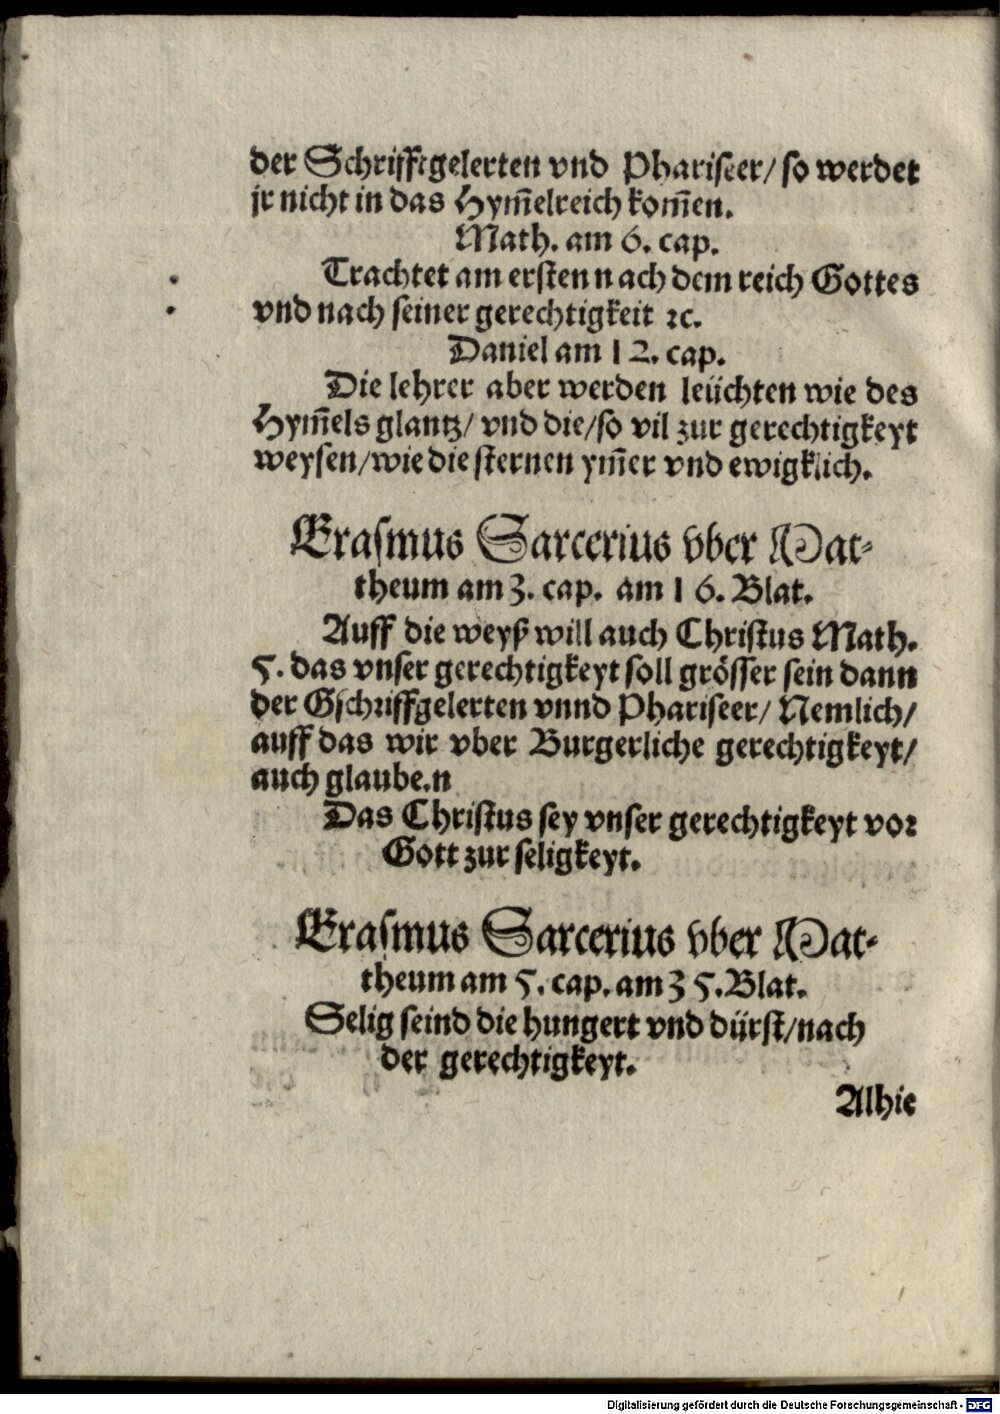 der Schrifftgelerten vnd Phariseer/ so werdet
jr nicht in das Hym̃elreich kom̃en.
Math. am 6. cap.
Trachtet am ersten nach dem reich Gottes
vnd nach seiner gerechtigkeit ꝛc.
Daniel am 12. cap.
Die lehrer aber werden leüchten wie des
Hym̃els glantz/ vnd die/so vil zur gerechtigkeyt
weysen/wie die sternen ym̃er vnd ewigklich.
Erasmus Sarcerius vber Mat-
theum am 3. cap. am 16. Blat.
Auff die weyß will auch Christus Math.
5. das vnser gerechtigkeyt soll grösser sein dann
der Gschriffgelerten vnnd Phariseer/ Nemlich/
auff das wir vber Burgerliche gerechtigkeyt/
auch glaube.n
Das Christus sey vnser gerechtigkeyt vor
Gott zur seligkeyt.
Erasmus Sarcerius vber Mat-
theum am 5. cap. am 35. Blat.
Selig seind die hungert vnd dürst/nach
der gerechtigkeyt.
Alhie
Digitalisierung gefördert durch die Deutsche Forschungsgemeinschaft - DFG